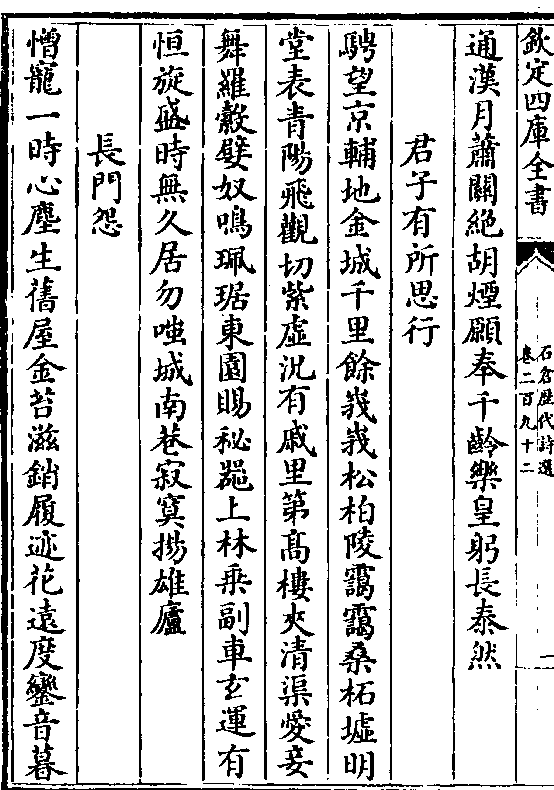 欽定四庫全書
石倉歷代詩選
卷二百九十二
一
通漢月蕭關絶胡煙願奉千齡樂皇躬長泰然
君子有所思行
騁望京輔地金城千里餘峩峩松柏陵靄靄桑柘墟明
堂表青陽飛觀切紫虛況有戚里第高樓夾清渠愛妾
舞羅縠嬖奴鳴珮琚東園賜秘器上林乗副車玄運有
恒旋盛時無久居勿嗤城南巷寂寞揚雄廬
長門怨
憎寵一時心塵生舊屋金苔滋銷履迹花遠度鑾音暮